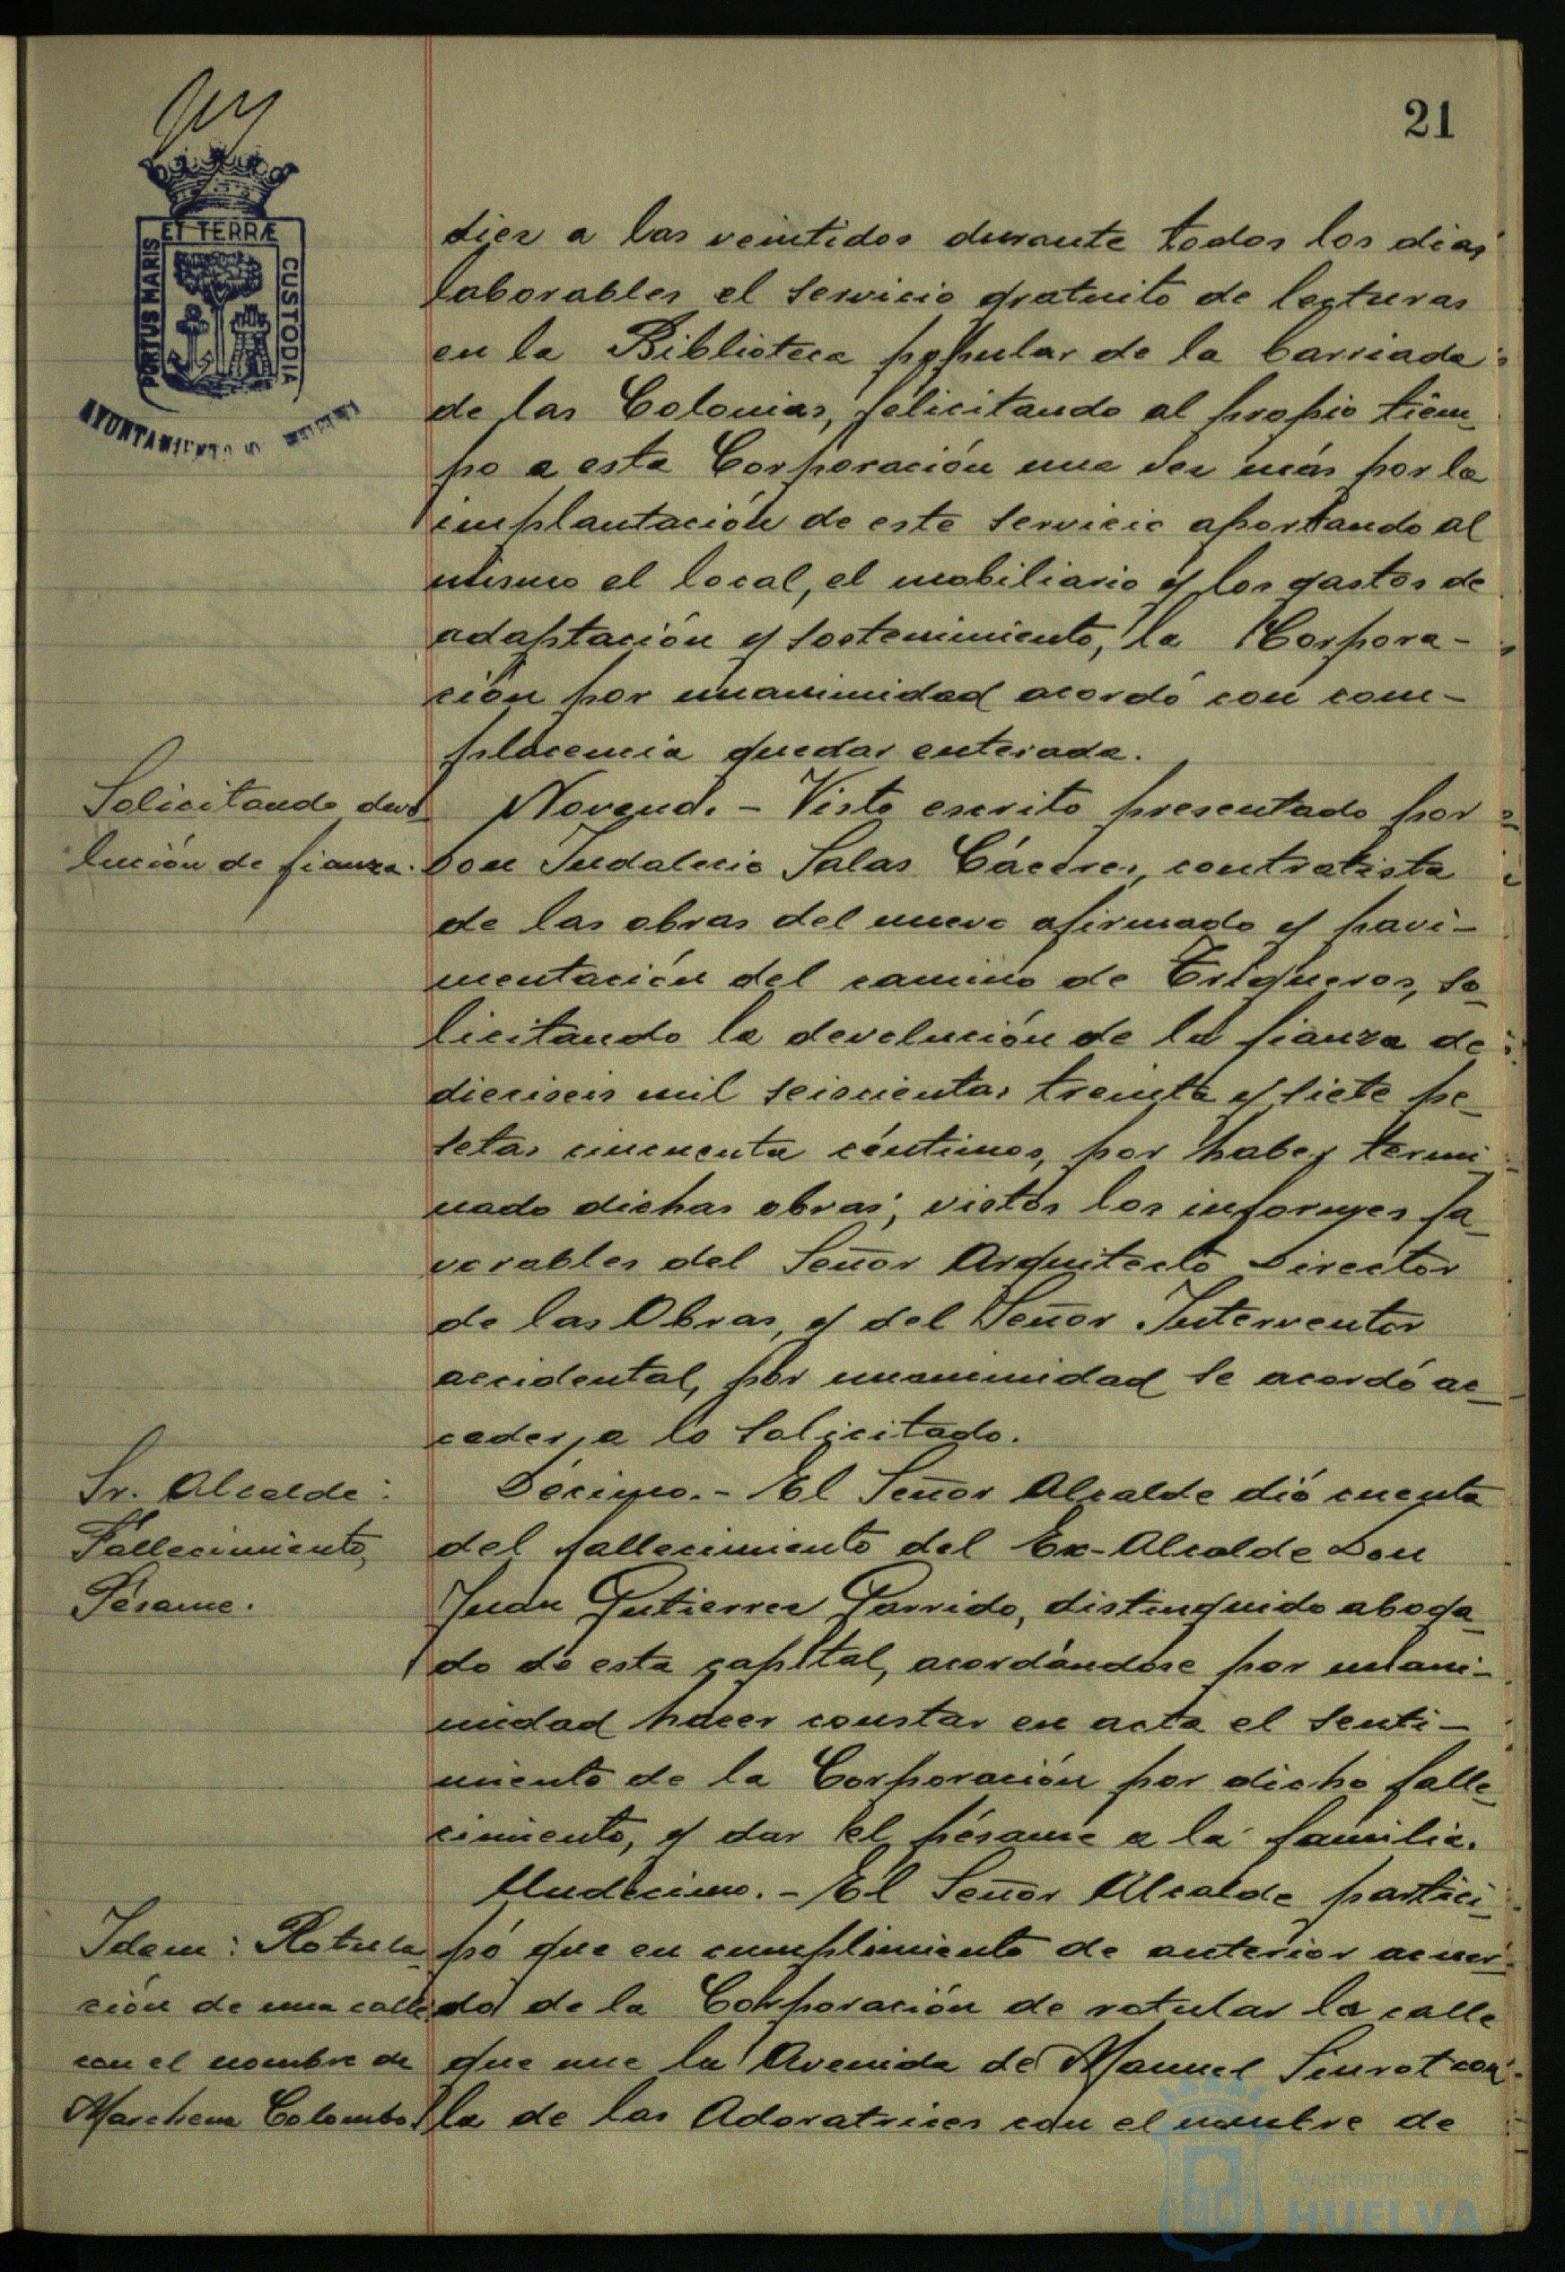 21
ET TERRÆ
PORTUS MARIS
CUSTODIA
AYUNTAMIENTO
diez a las veintidos durante todos los dias
laborables el servicio gratuito de lecturas
en la Biblioteca popular de la barriada
de las Colonias, felicitando al propio tiem_
po a esta Corporación una vez más por la
implantación de este servicio aportando al
mismo el local, el mobiliario y los gastos de
adaptación y sostenimiento, la Corpora-
ción por unanimidad acordó con com-
placencia quedar enterada.
Solicitando devo
lución de fianza.
Noveno. - Visto escrito presentado por
Don Indalecio Salas Cáceres, contratista
de las obras del nuevo afirmado y pavi-
mentación del camino de Trigueros, so_
licitando la devolución de la fianza de
dieciseis mil seiscientas treinta y siete pe_
setas cincuenta céntimos, por haber termi_
nado dichas obras; vistos los informes fa_
vorables del Señor Arquitecto Director
de las Obras, y del Señor Interventor
accidental, por unanimidad se acordó ac_
ceder a lo solicitado.
Sr. Alcalde:
Fallecimiento,
Pésame.
Décimo. - El Señor Alcalde dió cuenta
del fallecimiento del Ex-Alcalde Don
Juan Gutierrez Garrido, distinguido aboga_
do de esta capital, acordándose por unani-
midad hacer constar en acta el senti-
miento de la Corporación por dicho falle_
cimiento, y dar el pésame a la familia.
Undécimo. - El Señor Alcalde partici_
Idem: Rotula
ción de una calle
con el nombre de
Marchena Colombo
pó que en cumplimiento de anterior acuer_
do de la Corporación de rotular la calle
que une la Avenida de Manuel Siurot con
la de las Adoratrices con el nombre de
Ayuntamiento de
HUELVA